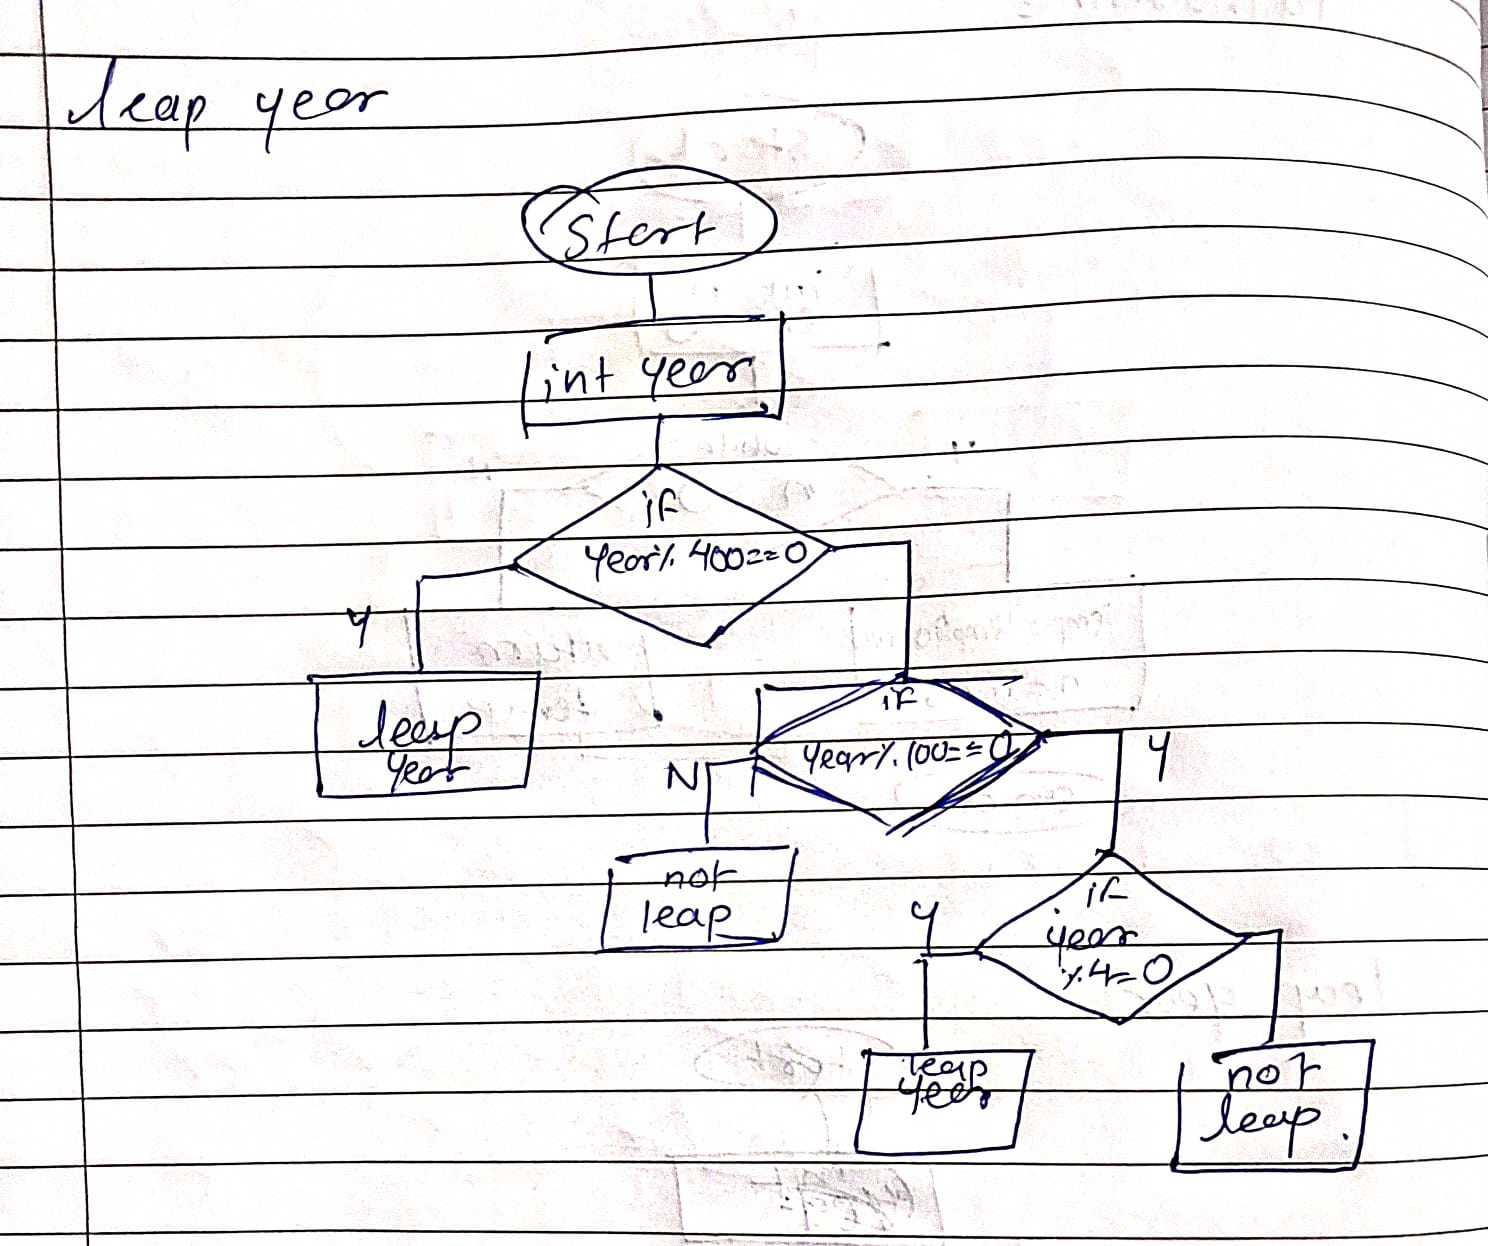 leap year
Start
int year
if
year % 400==0
Y
leap
year
if
year % 100==0
N
Y
not
leap
if
year
% 4=0
Y
leap
year
not
leap.